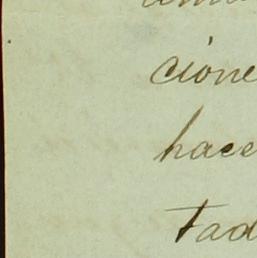 cione
hace
tad